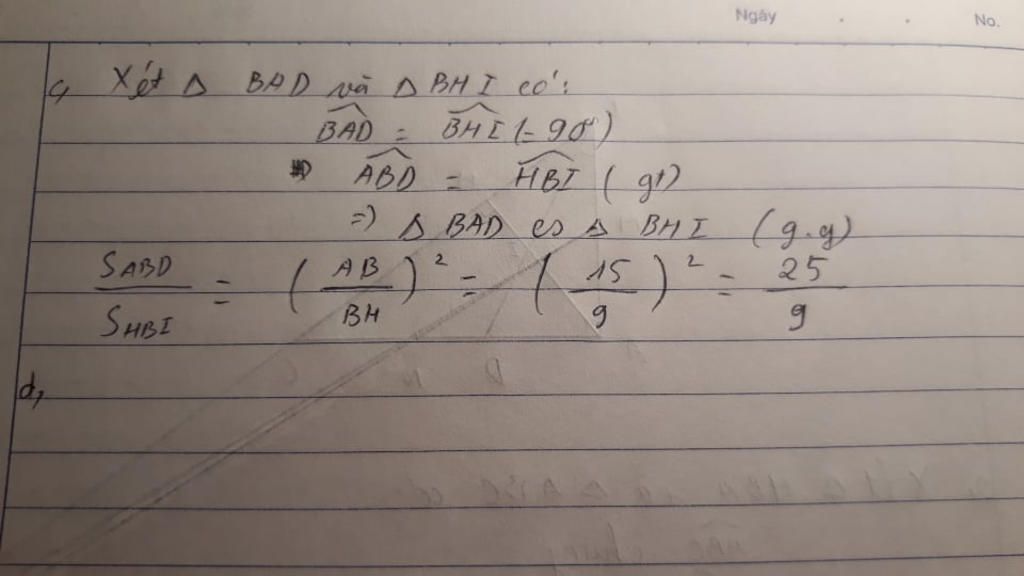 Ngày . . No.
c, Xét Δ BAD và Δ BHI có:
\widehat{BAD} = \widehat{BHI} (= 90°)
\widehat{ABD} = \widehat{HBI} (gt)
=) Δ BAD ∽ Δ BHI (g.g)
\frac{S_{ABD}}{S_{HBI}} = (\frac{AB}{BH})^2 = (\frac{15}{9})^2 = \frac{25}{9}
d,